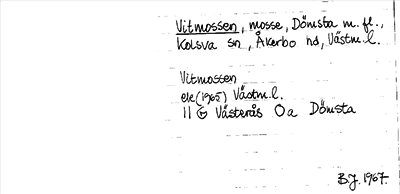 Vitmossen, mosse, Dömsta m. fl.,
Kolsva sn, Åkerbo hd, Västm.l.
Vitmossen
ek (1965) Västm.l.
11 G Västerås 0 a Dömsta
B.J. 1967.